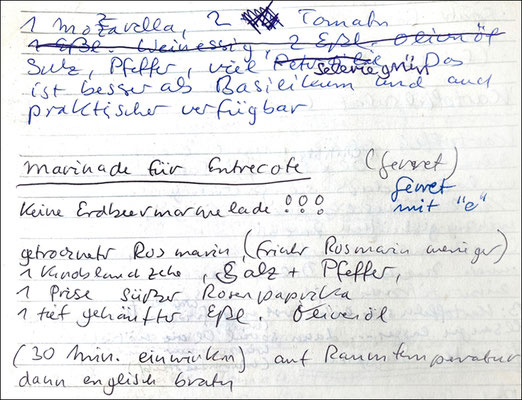 1 Mozzarella, 2 Tomatn
1 Eßl. Weinessig, 2 Eßl. Olivenöl
Salz, Pfeffer, viel Selleriegrün, Das
ist besser als Basilikum und auch
praktischer verfügbar
Marinade für Entrecote (Gerret)
Gerret
keine Erdbeermarmelade !!! mit "e"
getrockneter Rosmarin, (frischr Rosmarin weniger)
1 Knoblauchzehe, Salz + Pfeffer,
1 Prise süßer Rosenpaprika
1 tief gehäufter Eßl. Olivenöl
(30 Min. einwirkn) auf Raumtemperatur
dann englisch bratn